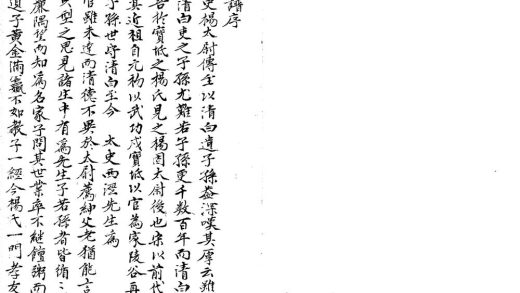 譜序
史楊太尉傳至以清白遺子孫益深嘆其厚云雖
清白吏之子孫尤難若子孫更千數百年而清白
吾於寶坻之楊氏見之楊固太尉後也宋以前代
其近祖自元初以武功戍寶坻以官為家陵谷再
子孫世守清白至今 太史西先生為
官雖未達而清德不異於太尉薦紳父老猶能言
典型之思見諸生中有為先生子若孫者皆循〻
廉隅望而知為名家子問其世業率不繼饘粥而
遺子黃金滿籯不如教子一經今楊氏一門孝友